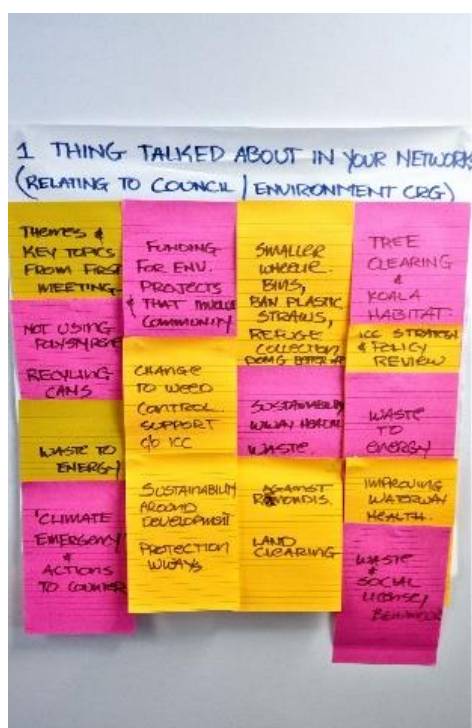 1 THING TALKED ABOUT IN YOUR NETWORKS
(RELATING TO COUNCIL / ENVIRONMENT CRG)
THEMES &
KEY TOPICS
FROM FIRST
MEETING
NOT USING
POLYSTYRENE
RECYLING
CANS
WASTE TO
ENERGY
'CLIMATE
EMERGENCY'
&
ACTIONS
TO COUNTER
FUNDING
FOR ENV.
PROJECTS
& THAT INVOLVE
COMMUNITY
CHANGE
TO WEED
CONTROL.
SUPPORT
c/o ICC
SUSTAINABILITY
AROUND
DEVELOPMENT
PROTECTION
WWAYS
SMALLER
WHEELIE
BINS,
BAN PLASTIC
STRAWS,
REFUGE
COLLECTION
DOING BETTER
SUSTAINABILITY
WWAY HEALTH
WASTE.
AGAINST
REMONDIS.
LAND
CLEARING
TREE
CLEARING
&
KOALA
HABITAT.
ICC STRATEGY
& POLICY
REVIEW
WASTE
TO
ENERGY
IMPROVING
WATERWAY
HEALTH.
WASTE
&
SOCIAL
LICENSE/
BEHAVIOUR